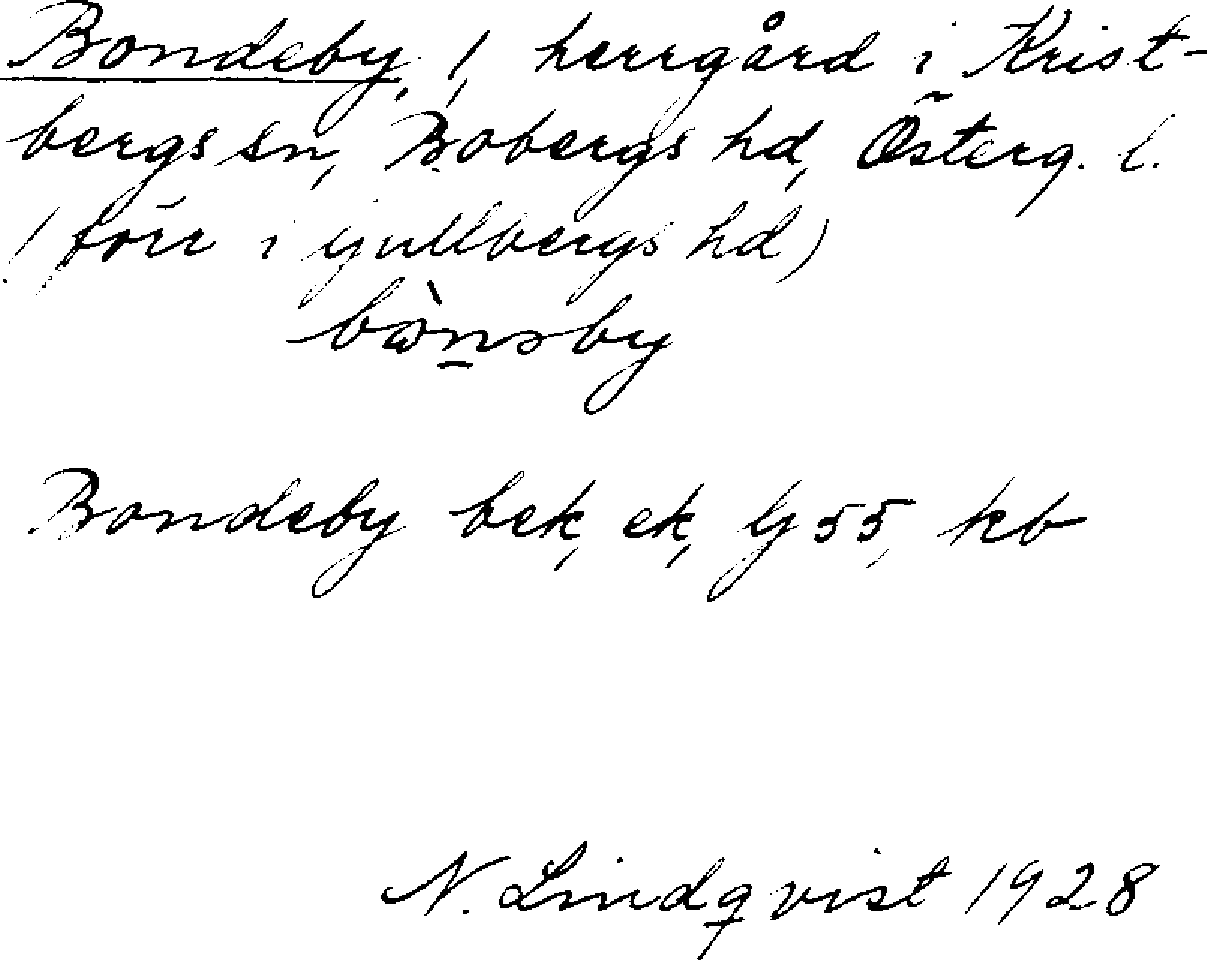 Bondeby, 1, herrgård i Krist-
bergs sn, Bobergs hd, Österg. l.
(förr i Gullbergs hd)
Bondeby bek, ek, Gj 55, kb
N. Lindqvist 1928